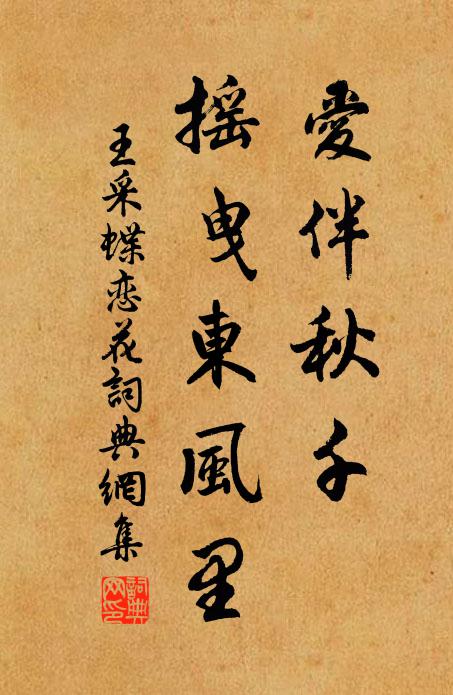 愛伴秋千
搖曳東風里
王采蝶恋花詞典網集
詞典
网印